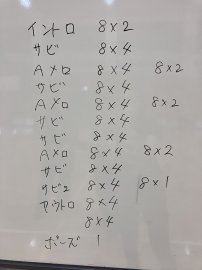 イントロ 8×2
サビ 8×4
Aメロ 8×4 8×2
サビ 8×4
Aメロ 8×4 8×2
サビ 8×4
サビ 8×4
Aメロ 8×4 8×2
サビ 8×4
サビ2 8×4 8×1
アウトロ 8×4
8×4
ポーズ 1